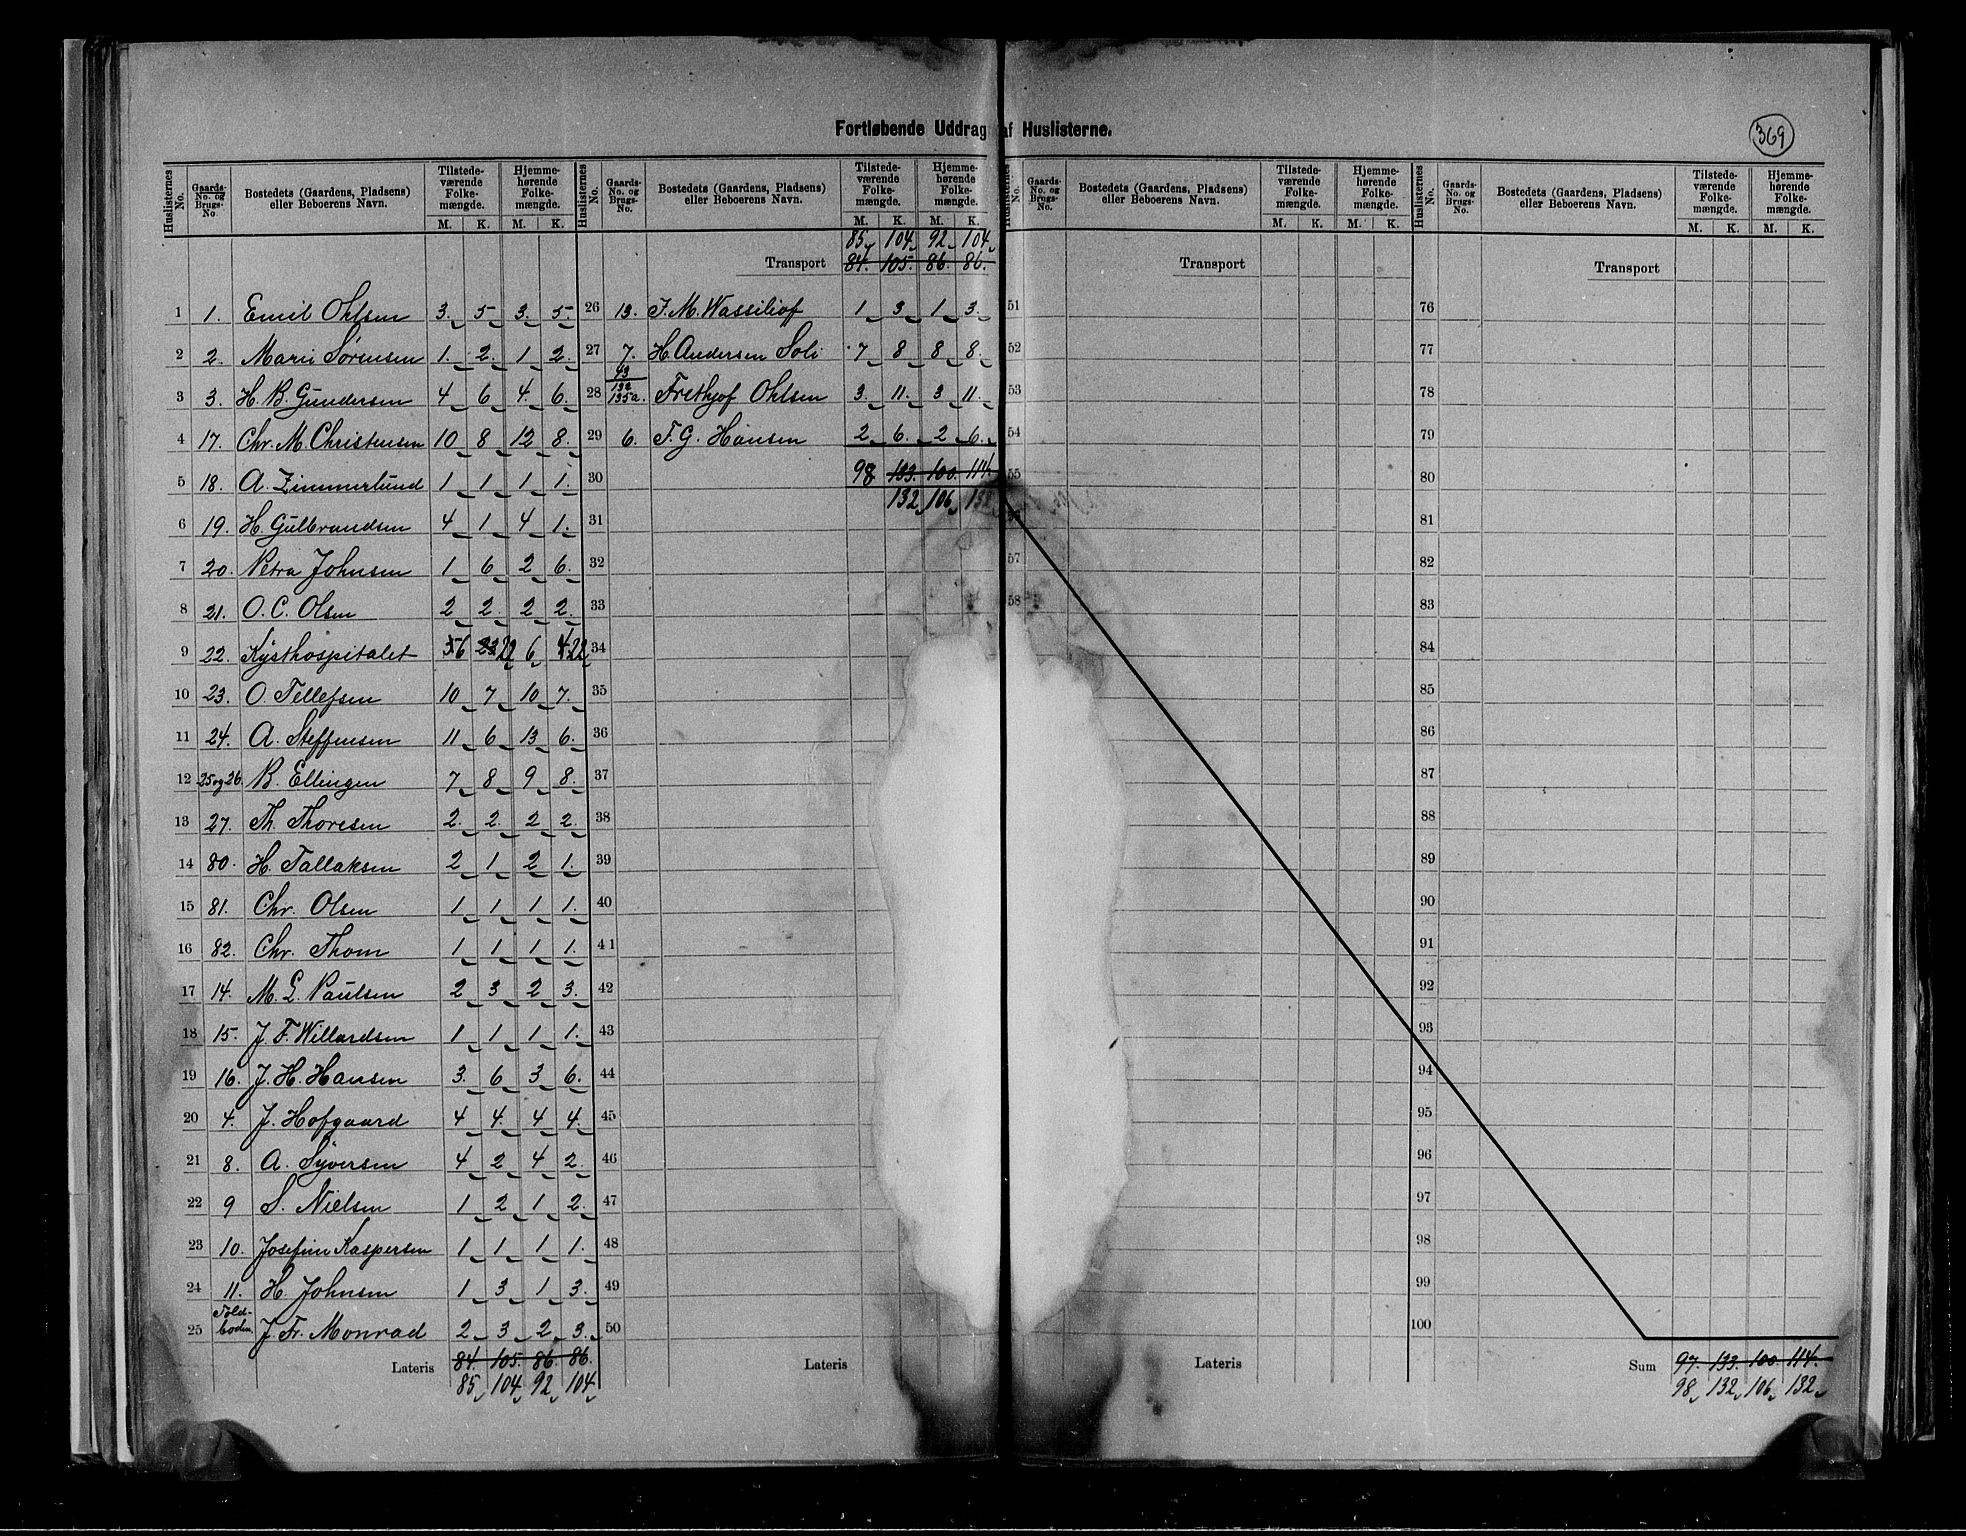 Fortløbende Uddrag af Huslisterne.
369
Huslisternes No. Gaards-No. og Brugs-No Bostedets (Gaardens, Pladsens) eller Beboerens Navn. Tilstedeværende Folkemængde. M. K. Hjemmehørende Folkemængde. M. K.
1 1. Emil Ohlsen 3. 5 3. 5.
2 2. Marie Sørensen 1. 2. 1 2.
3 3. H. B. Gundersen 4 6 4. 6.
4 17. Chr. M. Christensen 10 8 12 8.
5 18. A. Zimmerlund 1 1 1 1.
6 19. H. Gulbrandsen 4 1 4 1.
7 20. Petra Johnsen 1 6 2 6.
8 21. O. C. Olsen 2 2. 2 2.
9 22. Kysthospitalet 56 23 22 6 4 22
10 23. O. Tellefsen 10 7 10 7.
11 24. A. Steffensen 11 6 13 6.
12 25 og 26. B. Ellingen 7 8 9 8.
13 27. Th. Thoresen 2. 2. 2 2.
14 80. H. Tallaksen 2 1 2 1.
15 81. Chr. Olsen 1 1 1 1.
16 82. Chr. Thom 1 1 1 1.
17 14. M. L. Paulsen 2 3 2 3.
18 15. J. F. Willardsen 1 1 1 1.
19 16. J. H. Hansen 3. 6 3 6.
20 4. J. Hofgaard 4 4. 4 4.
21 8. A. Syversen 4 2 4 2.
22 9 S. Nielsen 1 2 1 2.
23 10. Josefine Kaspersen 1 1 1 1.
24 11. H. Johnsen 1 3 1 3.
25 Toldboden J. Fr. Monrad 2 3 2 3.
Lateris 84. 105. 86. 86.
85 104 92 104
Huslisternes No. Gaards-No. og Brugs-No. Bostedets (Gaardens, Pladsens) eller Beboerens Navn. Tilstedeværende Folkemængde. M. K. Hjemmehørende Folkemængde. M. K.
85 104 92 104
Transport 84. 105. 86. 86.
26 13. J. M. Wassiliof 1 3 1 3.
27 7. H. Andersen Soli 7 8 8 8.
28 43 132 135a. Frethjof Ohlsen 3. 11. 3 11.
29 6. F. G. Hansen 2 6. 2 6.
30 98 133. 100. 114.
132 106 132
31
32
33
34
35
36
37
38
39
40
41
42
43
44
45
46
47
48
49
50
Lateris
Huslisternes No. Gaards-No. og Brugs-No. Bostedets (Gaardens, Pladsens) eller Beboerens Navn. Tilstedeværende Folkemængde. M. K. Hjemmehørende Folkemængde. M. K.
Transport
51
52
53
54
55
57
58
Lateris
Huslisternes No. Gaards-No. og Brugs-No. Bostedets (Gaardens, Pladsens) eller Beboerens Navn. Tilstedeværende Folkemængde. M. K. Hjemmehørende Folkemængde. M. K.
Transport
76
77
78
79
80
81
82
83
84
85
86
87
88
89
90
91
92
93
94
95
96
97
98
99
100
Sum 97. 133. 100. 114.
98 132 106 132